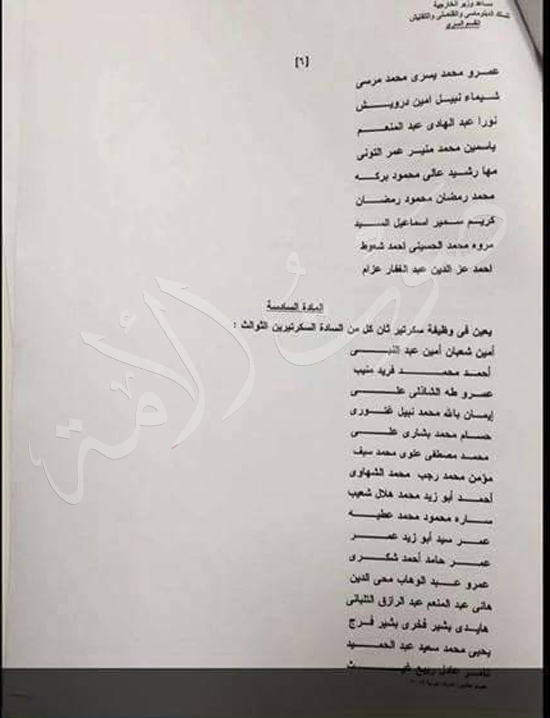 مساعد وزير الخارجية
للسلك الدبلوماسى والقنصلى والتفتيش
القسم السرى
[٦]
عمرو محمد يسرى محمد مرسى
شيماء نبيل امين درويش
نورا عبد الهادى عبد المنعم
ياسمين محمد منير عمر التونى
مها رشيد عالى محمود بركه
محمد رمضان محمود رمضان
كريم سمير اسماعيل السيد
مروه محمد الحسينى احمد شعوط
احمد عز الدين عبد الغفار عزام
المادة السادسة
يعين فى وظيفة سكرتير ثان كل من السادة السكرتيرين الثوالث :
أمين شعبان أمين عبد النبى
أحمد محمد فريد منيب
عمرو طه الشاذلى على
إيمان بالله محمد نبيل غنورى
حسام محمد بشارى على
محمد مصطفى علوى محمد سيف
مؤمن محمد رجب محمد الشهاوى
أحمد أبو زيد محمد هلال شعيب
ساره محمود محمد عطيه
عمر سيد أبو زيد عمر
عمر حامد أحمد شكرى
عمرو عبد الوهاب محى الدين
هانى عبد المنعم عبد الرازق التلبانى
هايدى بشير فخرى بشير فرج
يحيى محمد سعيد عبد الحميد
تامر عادل ربيع غيث
صوت الأمة